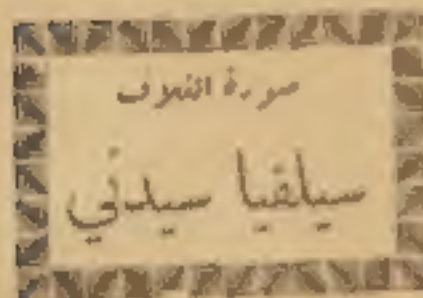 صورة الغلاف
سيلفيا سيدني